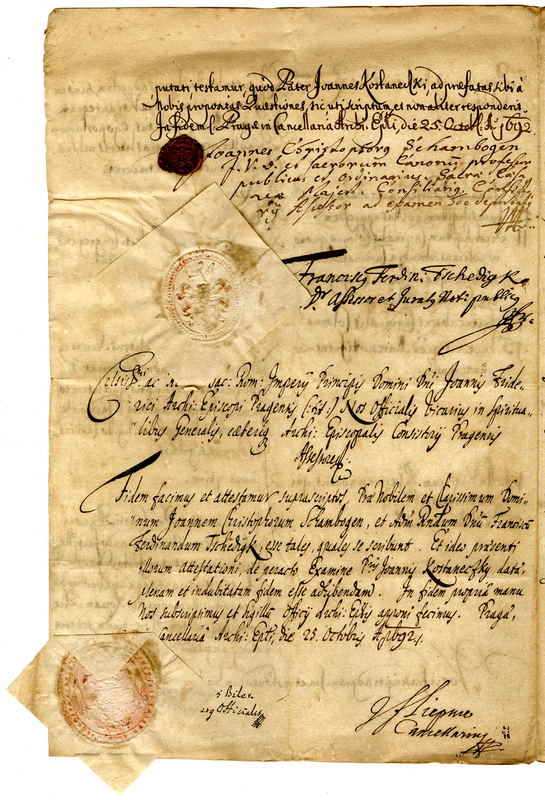 putati testamur, quod Pater Joannes Kostanecki, ad præfatas sibi à
Nobis propositas Quæstiones, sic uti scriptum, et non aliter responderit.
In fidem Pragæ in Cancellaria Archi: Epli, die 25. Octob. A. 1692.
Joannes Christophorg Schambogen
J. V. D. et sacrorum Canonum professor
publicus et ordinarius, Sacræ Cæsa
reæ Majest. Consiliarig, Consisto
rij Assessor ad examen hoc deputatg
Franciscg Ferdin. Tschedigk
Dr Assessor et Juratg Not. publicg
Celsissmi ac sac: Rom: Imperij Principis Domini Dni Joannis Fride-
rici Archi: Episcopi Pragensis (: tit :) Nos Officialis Vicarius in Spiritua-
libus Generalis, cæteriq Archi: Episcopalis Consistorij Pragensis
Assessores
Fidem facimus et attestamur suprascriptos, Præ Nobilem et Clarissimum Domi-
num Joannem Christophorum Schambogen, et Adm Rndum Dnum Franciscum
Ferdinandum Tschedigk esse tales, quales se scribunt. Et ideo præsenti
illorum attestationi, de peracto Examine Pris Joannis Kostaneczky data,
plenam et indubitatam fidem esse adhibendam. In fidem propria manu
Nos subscripsimus et sigillo officij Archi: Eplis apponi fecimus. Pragæ,
Cancellaria Archi: Epli, die 25. Octobris A. 1692.
Bilek
Officialis
Cancellarius